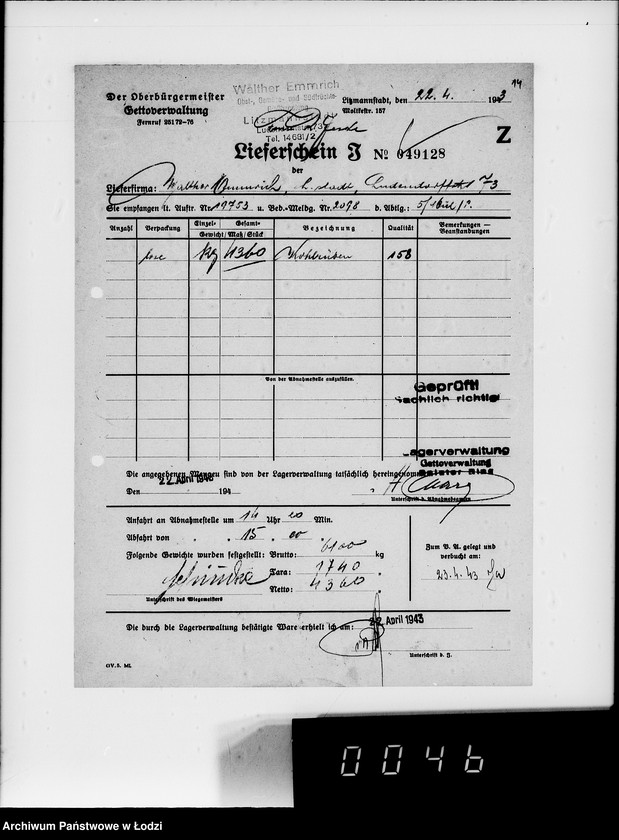 14
Der Oberbürgermeister
Gettoverwaltung
Fernruf 25179-76
Walther Emmrich
Obst-, Gemüse- und Südfrüchte-
Tel. 14681/2
Litzmannstadt, den 22.4. 1943
Moltkestr. 157
Z
Lieferschein J № 049128
der
Lieferfirma: Walther Emmrich, L. stadt, Ludendorffstr. 73
Sie empfangen lt. Auftr. Nr. 19753 u. Bed.-Meldg. Nr. 2098 d. Abtlg.:
Anzahl Verpackung Einzel- Gesamt- Bezeichnung Qualität Bemerkungen -
Gewicht/Maß/Stück Beanstandungen
lose kg 4360 Kohlrüben 158
Von der Abnahmestelle auszufüllen.
Geprüft!
sachlich richtig
Lagerverwaltung
Gettoverwaltung
Die angegebenen Mengen sind von der Lagerverwaltung tatsächlich hereingenommen
Den 22. April 1943 194
Unterschrift d. Abnahmebeamten
Anfahrt an Abnahmestelle um 14 Uhr 00 Min.
Abfahrt von " 15 " 00 "
Folgende Gewichte wurden festgestellt: Brutto: 6100 kg
Tara: 1740 "
Netto: 4360 "
Unterschrift des Wiegemeisters
Zum B. A. gelegt und
verbucht am:
23.4.43
Die durch die Lagerverwaltung bestätigte Ware erhielt ich am: 22. April 1943
Unterschrift d. J.
GV. 5. Ml.
0046
Archiwum Państwowe w Łodzi